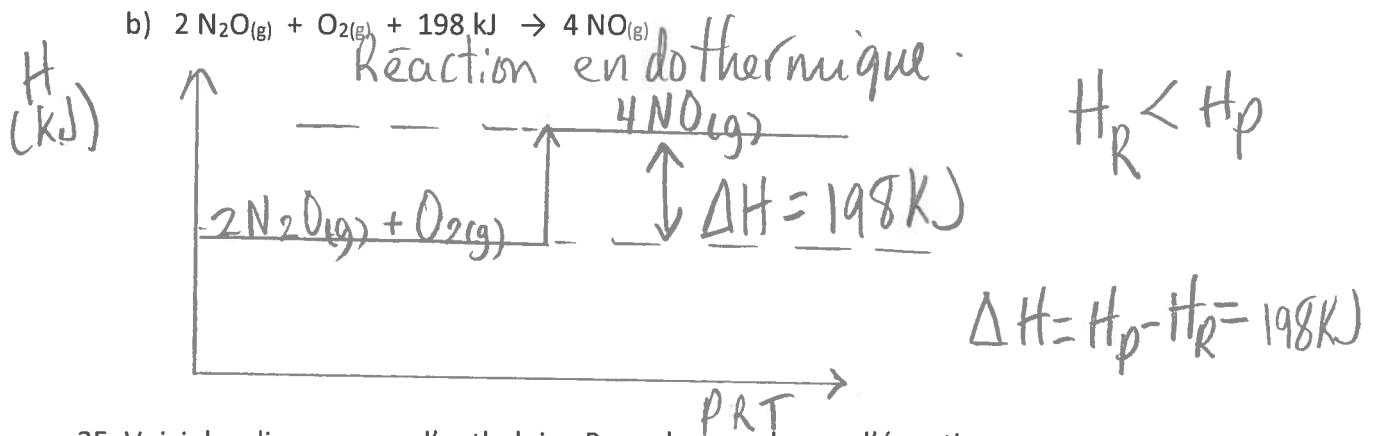 b) 2 N2O(g) + O2(g) + 198 kJ → 4 NO(g)
Réaction endothermique.
H
(kJ)
4NO(g)
HR < HP
2N2O(g) + O2(g)
ΔH = 198KJ
ΔH = HP - HR = 198KJ
PRT